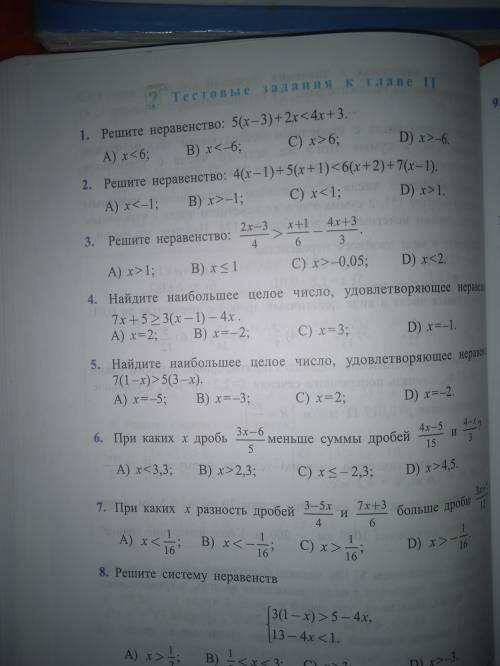 ? Тестовые задания к главе II
9.
1. Решите неравенство: 5(x−3)+2x<4x+3.
A) x<6; B) x<−6; C) x>6; D) x>−6.
2. Решите неравенство: 4(x−1)+5(x+1)<6(x+2)+7(x−1).
A) x<−1; B) x>−1; C) x<1; D) x>1.
3. Решите неравенство: (2x−3)/4 > (x+1)/6 − (4x+3)/3.
A) x>1; B) x≤1 C) x>−0,05; D) x<2.
4. Найдите наибольшее целое число, удовлетворяющее
7x+5≥3(x−1)−4x.
A) x=2; B) x=−2; C) x=3; D) x=−1.
5. Найдите наибольшее целое число, удовлетворяющее
7(1−x)>5(3−x).
A) x=−5; B) x=−3; C) x=2; D) x=−2.
6. При каких x дробь (3x−6)/5 меньше суммы дробей (4x−5)/15 и
A) x<3,3; B) x>2,3; C) x≤−2,3; D) x>4,5.
7. При каких x разность дробей (3−5x)/4 и (7x+3)/6 больше дроби
A) x<1/16; B) x<−1/16; C) x>1/16; D) x>−1/16.
8. Решите систему неравенств
{3(1−x)>5−4x,
13−4x<1.